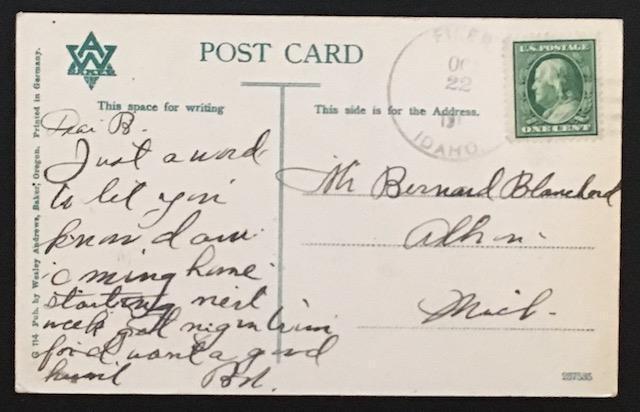 POST CARD
This space for writing
This side is for the Address.
G 114 Pub. by Wesley Andrews, Baker, Oregon. Printed in Germany.
AW
BAKER
FILER
OC
22
191
IDAHO.
U.S. POSTAGE
ONE CENT
Dear B.
Just a word
to let you
know I am
coming home
starting next
week get nigger
for I want a good
hunt
Mr Bernard Blanchard
Mich.
237535